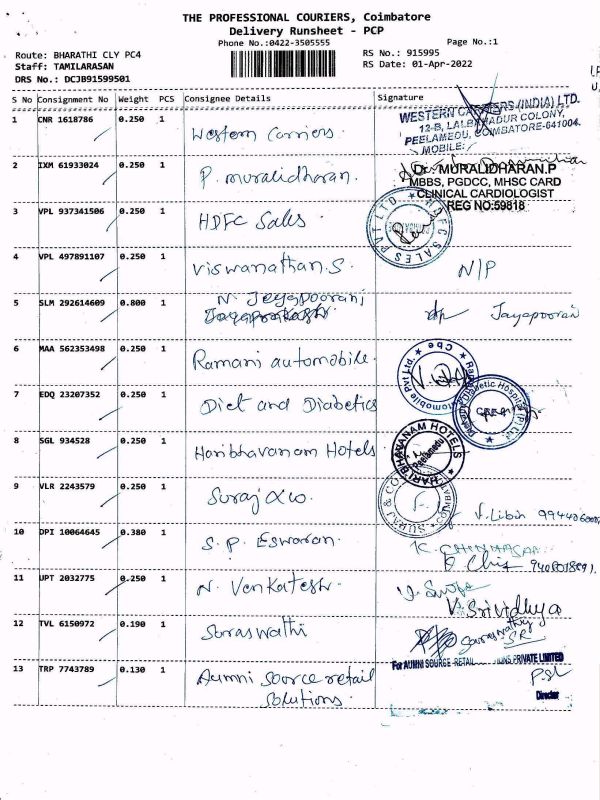 THE PROFESSIONAL COURIERS, Coimbatore
Delivery Runsheet - PCP
Phone No.:0422-3505555
Page No.:1
Route: BHARATHI CLY PC4
RS No.: 915995
Staff: TAMILARASAN
RS Date: 01-Apr-2022
DRS No.: DCJB91599501
S No Consignment No Weight PCS Consignee Details Signature
1 CNR 1618786 0.250 1 Western Carriers.
WESTERN CARRIERS (INDIA) LTD.
12-B, LALBAHADUR COLONY,
PEELAMEDU, COIMBATORE-641004.
MOBILE:
2 IXM 61933024 0.250 1 P. Muralidharan.
Dr. MURALIDHARAN.P
MBBS, PGDCC, MHSC CARD
CLINICAL CARDIOLOGIST
REG NO:59818
3 VPL 937341506 0.250 1 HDFC Sales
HDFC SALES PVT LTD
4 VPL 497891107 0.250 1 Viswanathan.S. N/P
5 SLM 292614609 0.800 1 N. Jeyapoorani
Jayapoorani
6 MAA 562353498 0.250 1 Ramani automobile.
7 EDQ 23207352 0.250 1 Diet and Diabetics
8 SGL 934528 0.250 1 Haribhavanam Hotels
HARI BHAVANAM HOTELS
Peelamedu
9 VLR 2243579 0.250 1 Suraj & co.
SURAJ & CO
V. Libin
10 DPI 10064645 0.380 1 S.P. Eswaran.
11 UPT 2032775 0.250 1 N. Venkatesh.
V. Srividhya
12 TVL 6150972 0.190 1 Saraswathi
Saraswathy
13 TRP 7743789 0.130 1 Aumni source retail
solutions.
For AUMNI SOURCE RETAIL PRIVATE LIMITED
Director